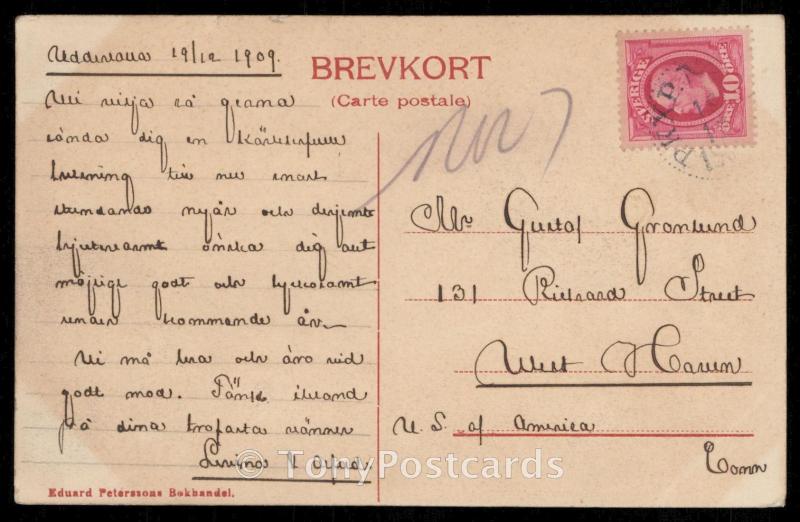 Uddevalla 19/12 1909.
BREVKORT
(Carte postale)
SVERIGE
10
ÖRE
Vi vilja så gerna
sända dig en kärleksfull
helsning till nu snart
stundande nyår och derjemte
hjertevarmt önska dig allt
möjligt godt och lyckosamt
under kommande år.
Vi må bra och äro vid
godt mod. Tänk ibland
på dina trofasta vänner
Mr Gustaf Gronlund
131 Richard Street
West Haven
U. S. of America
Conn
© TonyPostcards
Eduard Peterssons Bokhandel.